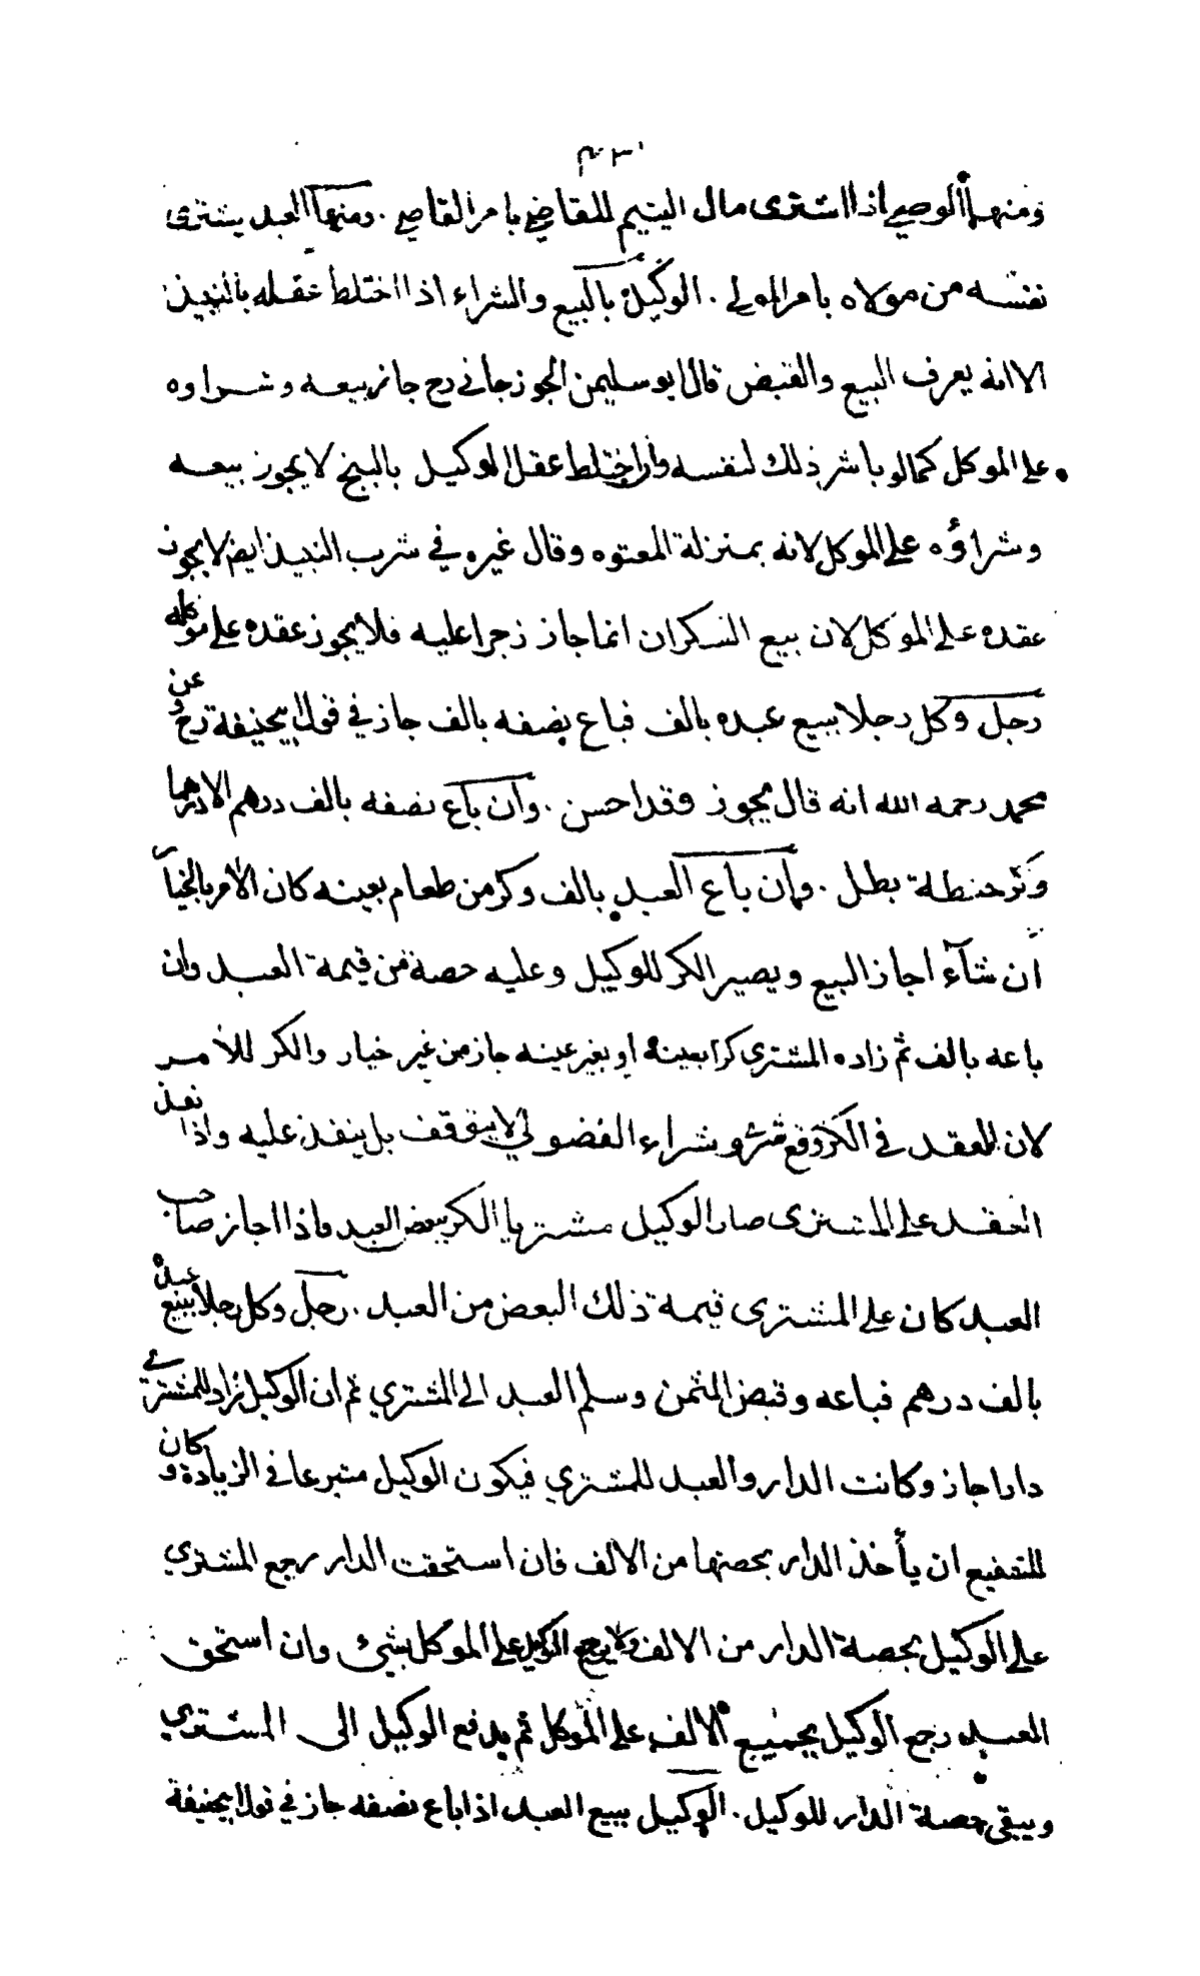 ومنها الوصي اذا اشترى مال اليتيم للقاضي بامر القاضي . ومنها العبد يشترى
نفسه من مولاه بامر المولى . الوكيل بالبيع والشراء اذا اختلط عقله بالنبيذ
الا انه يعرف البيع والقبض قال ابو سليمن الجوزجاني رح جاز بيعه وشراوه
على الموكل كما لو باشر ذلك لنفسه وان اختلط عقل الوكيل بالبنج لا يجوز بيعه
وشراؤه على الموكل لانه بمنزلة المعتوه وقال غيره في شرب النبيذ ايض لا يجوز
عقده على الموكل لان بيع السكران انما جاز زجرا عليه فلا يجوز عقده على موكله
رجل وكل رجلا ببيع عبده بالف فباع نصفه بالف جاز في قول ابيحنيفة رح وعن
محمد رحمه الله انه قال يجوز وقد احسن . وان باع نصفه بالف درهم الا درهما
وكر حنطة بطل . وان باع العبد بالف وكر من طعام بعينه كان الامر بالخيار
ان شآء اجاز البيع ويصير الكر للوكيل وعليه حصة من قيمة العبد وان
باعه بالف ثم زاده المشتري كرا بعينه او بغير عينه جاز من غير خيار والكر للآمر
لان العقد في الكر وقع شرى وشراء الفضولي لا يتوقف بل ينفذ عليه واذا نفذ
العقد على المشترى صار الوكيل مشتريا الكر ببعض العبد فاذا اجاز صاحب
العبد كان على المشترى قيمة ذلك البعض من العبد . رجل وكل رجلا ببيع عبده
بالف درهم فباعه وقبض الثمن وسلم العبد الى المشتري ثم ان الوكيل زاد للمشترى
دارا جاز وكانت الدار والعبد للمشتري فيكون الوكيل متبرعا في الزيادة وكان
للشفيع ان يأخذ الدار بحصتها من الالف فان استحقت الدار رجع المشتري
على الوكيل بحصة الدار من الالف ولا يرجع الوكيل على الموكل بشئ وان استحق
العبد رجع الوكيل بجميع الالف على الموكل ثم يدفع الوكيل الى المشتري
ويبقى حصة الدار للوكيل . الوكيل ببيع العبد اذا باع نصفه جاز في قول ابيحنيفة